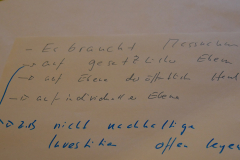 - Es braucht Messebarn
→ auf gesetzlicher Ebene
→ auf Ebene der öffentlich
→ auf individueller Ebene
→ zB nicht nachhaltige
Investition offen legen